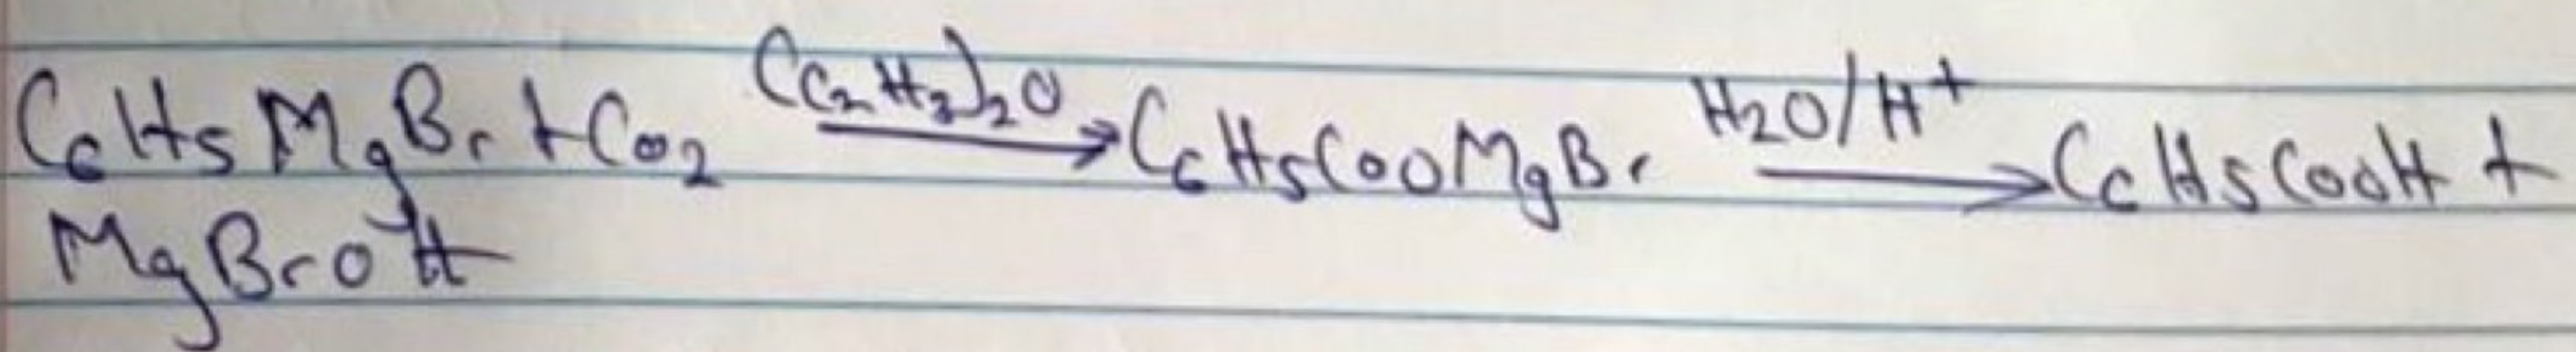 C6H5MgBr + CO2 (C2H3)2O → C6H5COOMgBr H2O/H+ → C6H5COOH +
MgBrOH